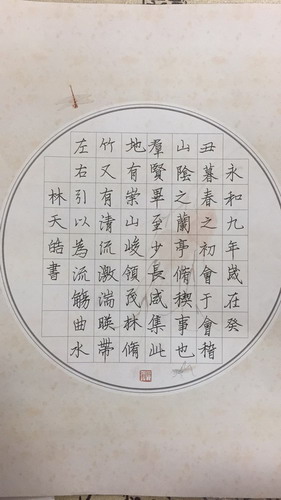 永和九年歲在癸
丑暮春之初會于會稽
山陰之蘭亭脩稧事也
羣賢畢至少長咸集此
地有崇山峻領茂林脩
竹又有清流激湍暎帶
左右引以為流觴曲水
林天皓書